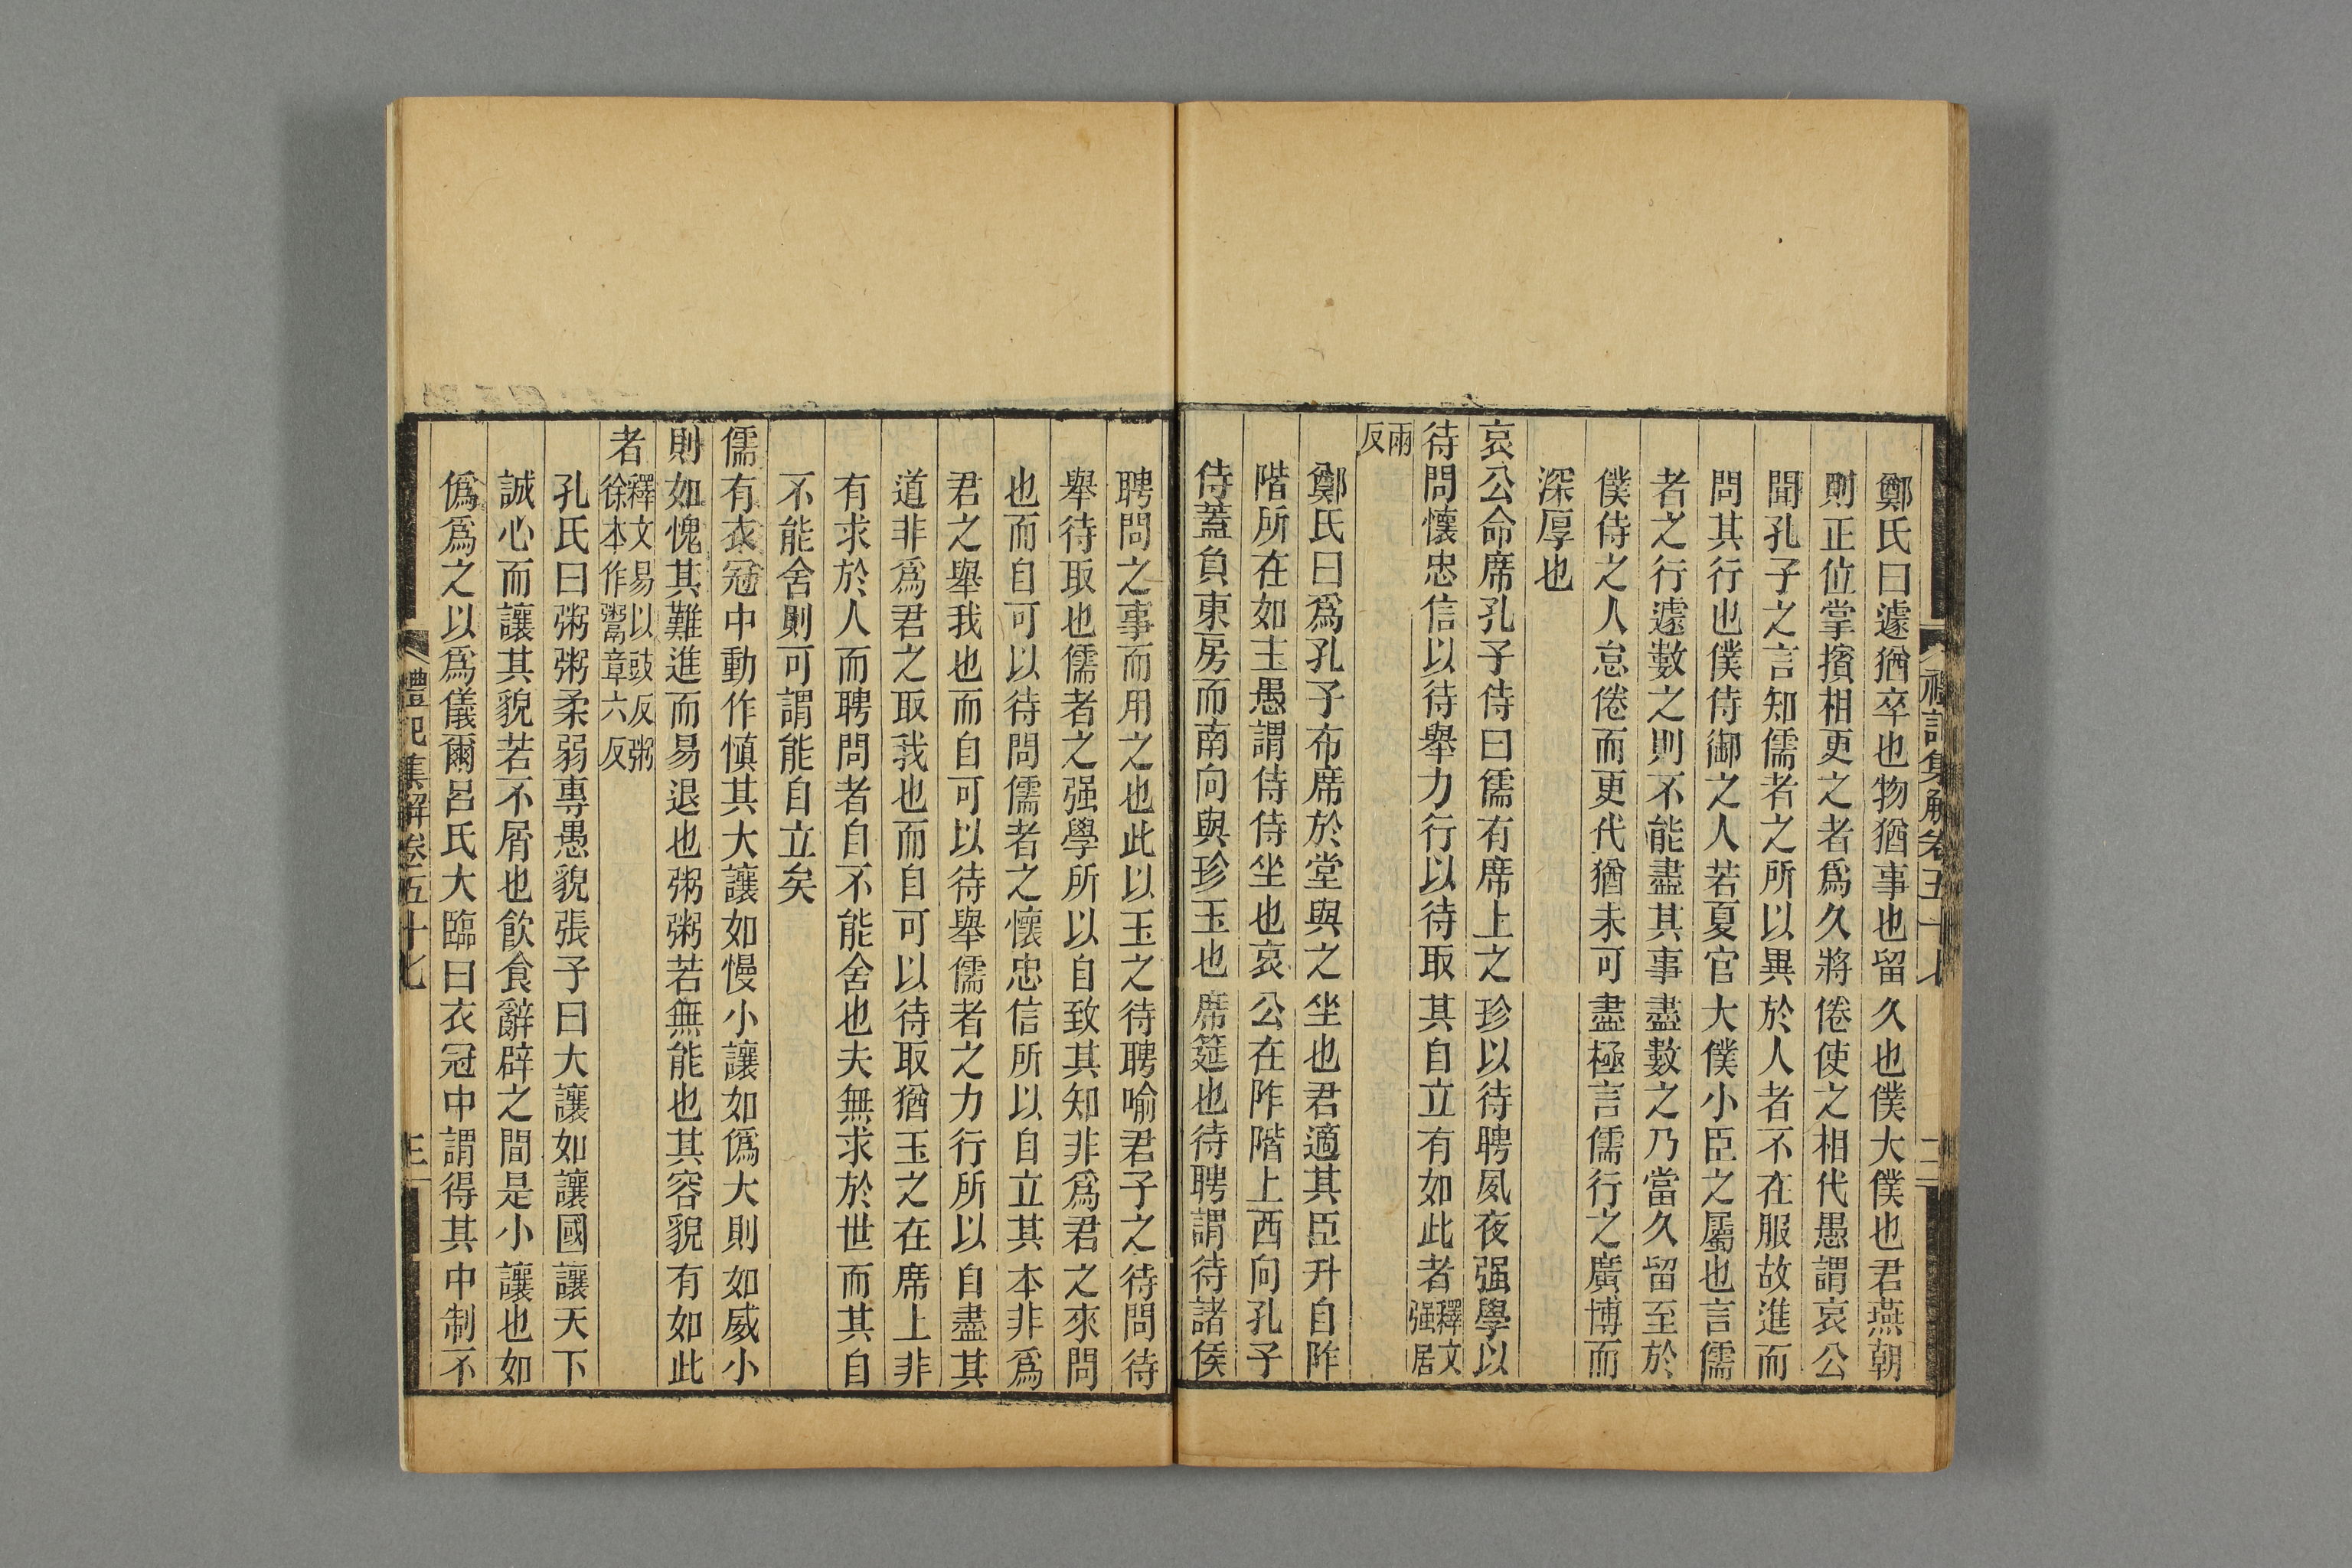 禮記集解卷五十七
二
鄭氏曰遽猶卒也物猶事也留久也僕大僕也君燕朝
則正位掌擯相更之者爲久將倦使之相代愚謂哀公
聞孔子之言知儒者之所以異於人者不在服故進而
問其行也僕侍御之人若夏官大僕小臣之屬也言儒
者之行遽數之則不能盡其事盡數之乃當久留至於
僕侍之人怠倦而更代猶未可盡極言儒行之廣博而
深厚也
哀公命席孔子侍曰儒有席上之珍以待聘夙夜强學以
待問懷忠信以待舉力行以待取其自立有如此者釋文强居
兩反
鄭氏曰爲孔子布席於堂與之坐也君適其臣升自阼
階所在如主愚謂侍侍坐也哀公在阼階上西向孔子
侍蓋負東房而南向與珍玉也席筵也待聘謂待諸侯
聘問之事而用之也此以玉之待聘喻君子之待問待
舉待取也儒者之强學所以自致其知非爲君之來問
也而自可以待問儒者之懷忠信所以自立其本非爲
君之舉我也而自可以待舉儒者之力行所以自盡其
道非爲君之取我也而自可以待取猶玉之在席上非
有求於人而聘問者自不能舍也夫無求於世而其自
不能舍則可謂能自立矣
儒有衣冠中動作慎其大讓如慢小讓如僞大則如威小
則如愧其難進而易退也粥粥若無能也其容貌有如此
者釋文易以豉反粥徐本作鬻章六反
孔氏曰粥粥柔弱專愚貌張子曰大讓如讓國讓天下
誠心而讓其貌若不屑也飲食辭辟之間是小讓也如
僞爲之以爲儀爾呂氏大臨曰衣冠中謂得其中制不
禮記集解卷五十七
三